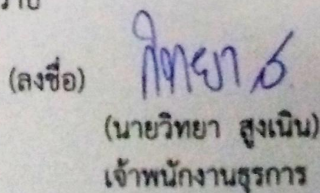 (ลงชื่อ) วิทยา ส
(นายวิทยา สูงเนิน)
เจ้าพนักงานธุรการ